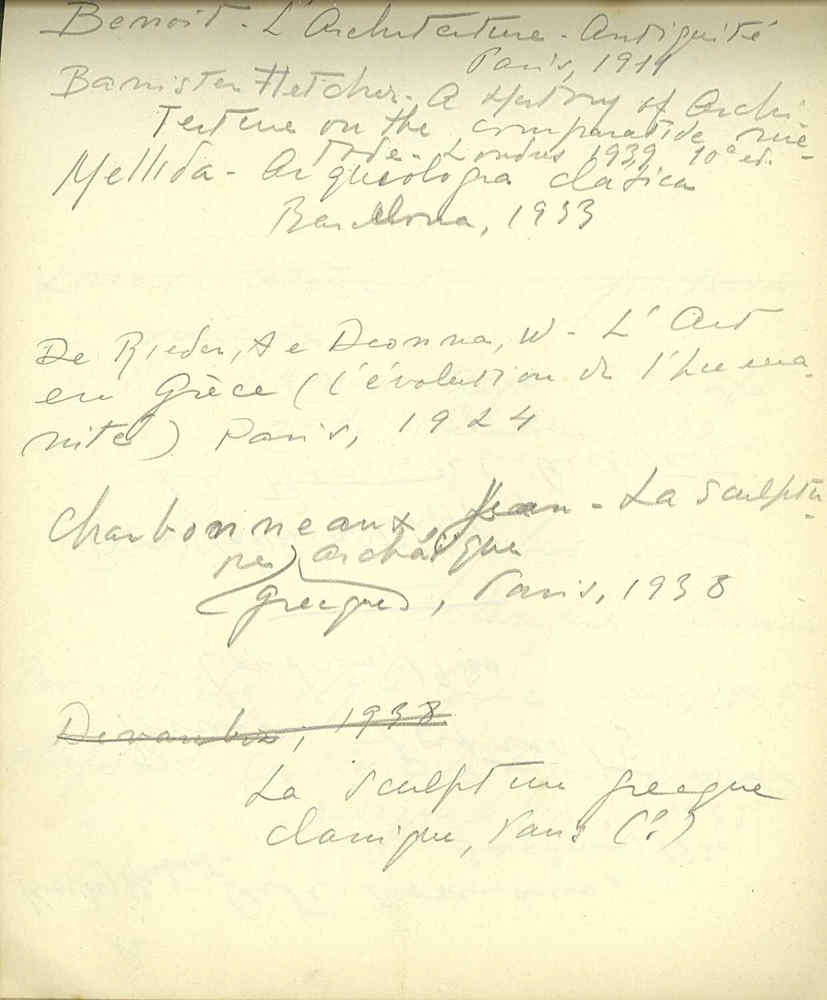 Benoit - L'Architecture - Antiquité
Paris, 1911
Bannister Fletcher - A History of Archi-
tecture on the comparative me-
tode - Londres 1939 10ª ed.
Mellida - Arqueologia clásica
Barcelona, 1933
De Rieder, A e Deonna, W - L'Art
en Grèce (l'évolution de l'huma-
nité) Paris, 1924
Charbonneaux, Jean - La Sculptu-
re archaïque
grecque, Paris, 1938
1938
La sculpture grecque
classique, Paris (?)